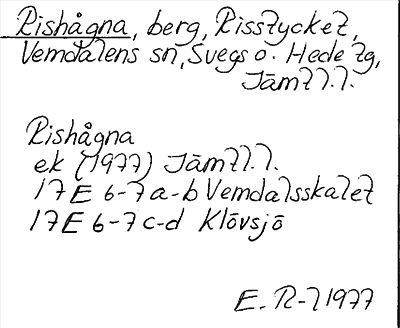 Rishågna, berg, Risstycket,
Vemdalens sn, Svegs o. Hede tg,
Jämtl.l.
Rishågna
ek (1977) Jämtl.l.
17E 6-7a-b Vemdalsskalet
17E 6-7c-d Klövsjö
E. R-l 1977